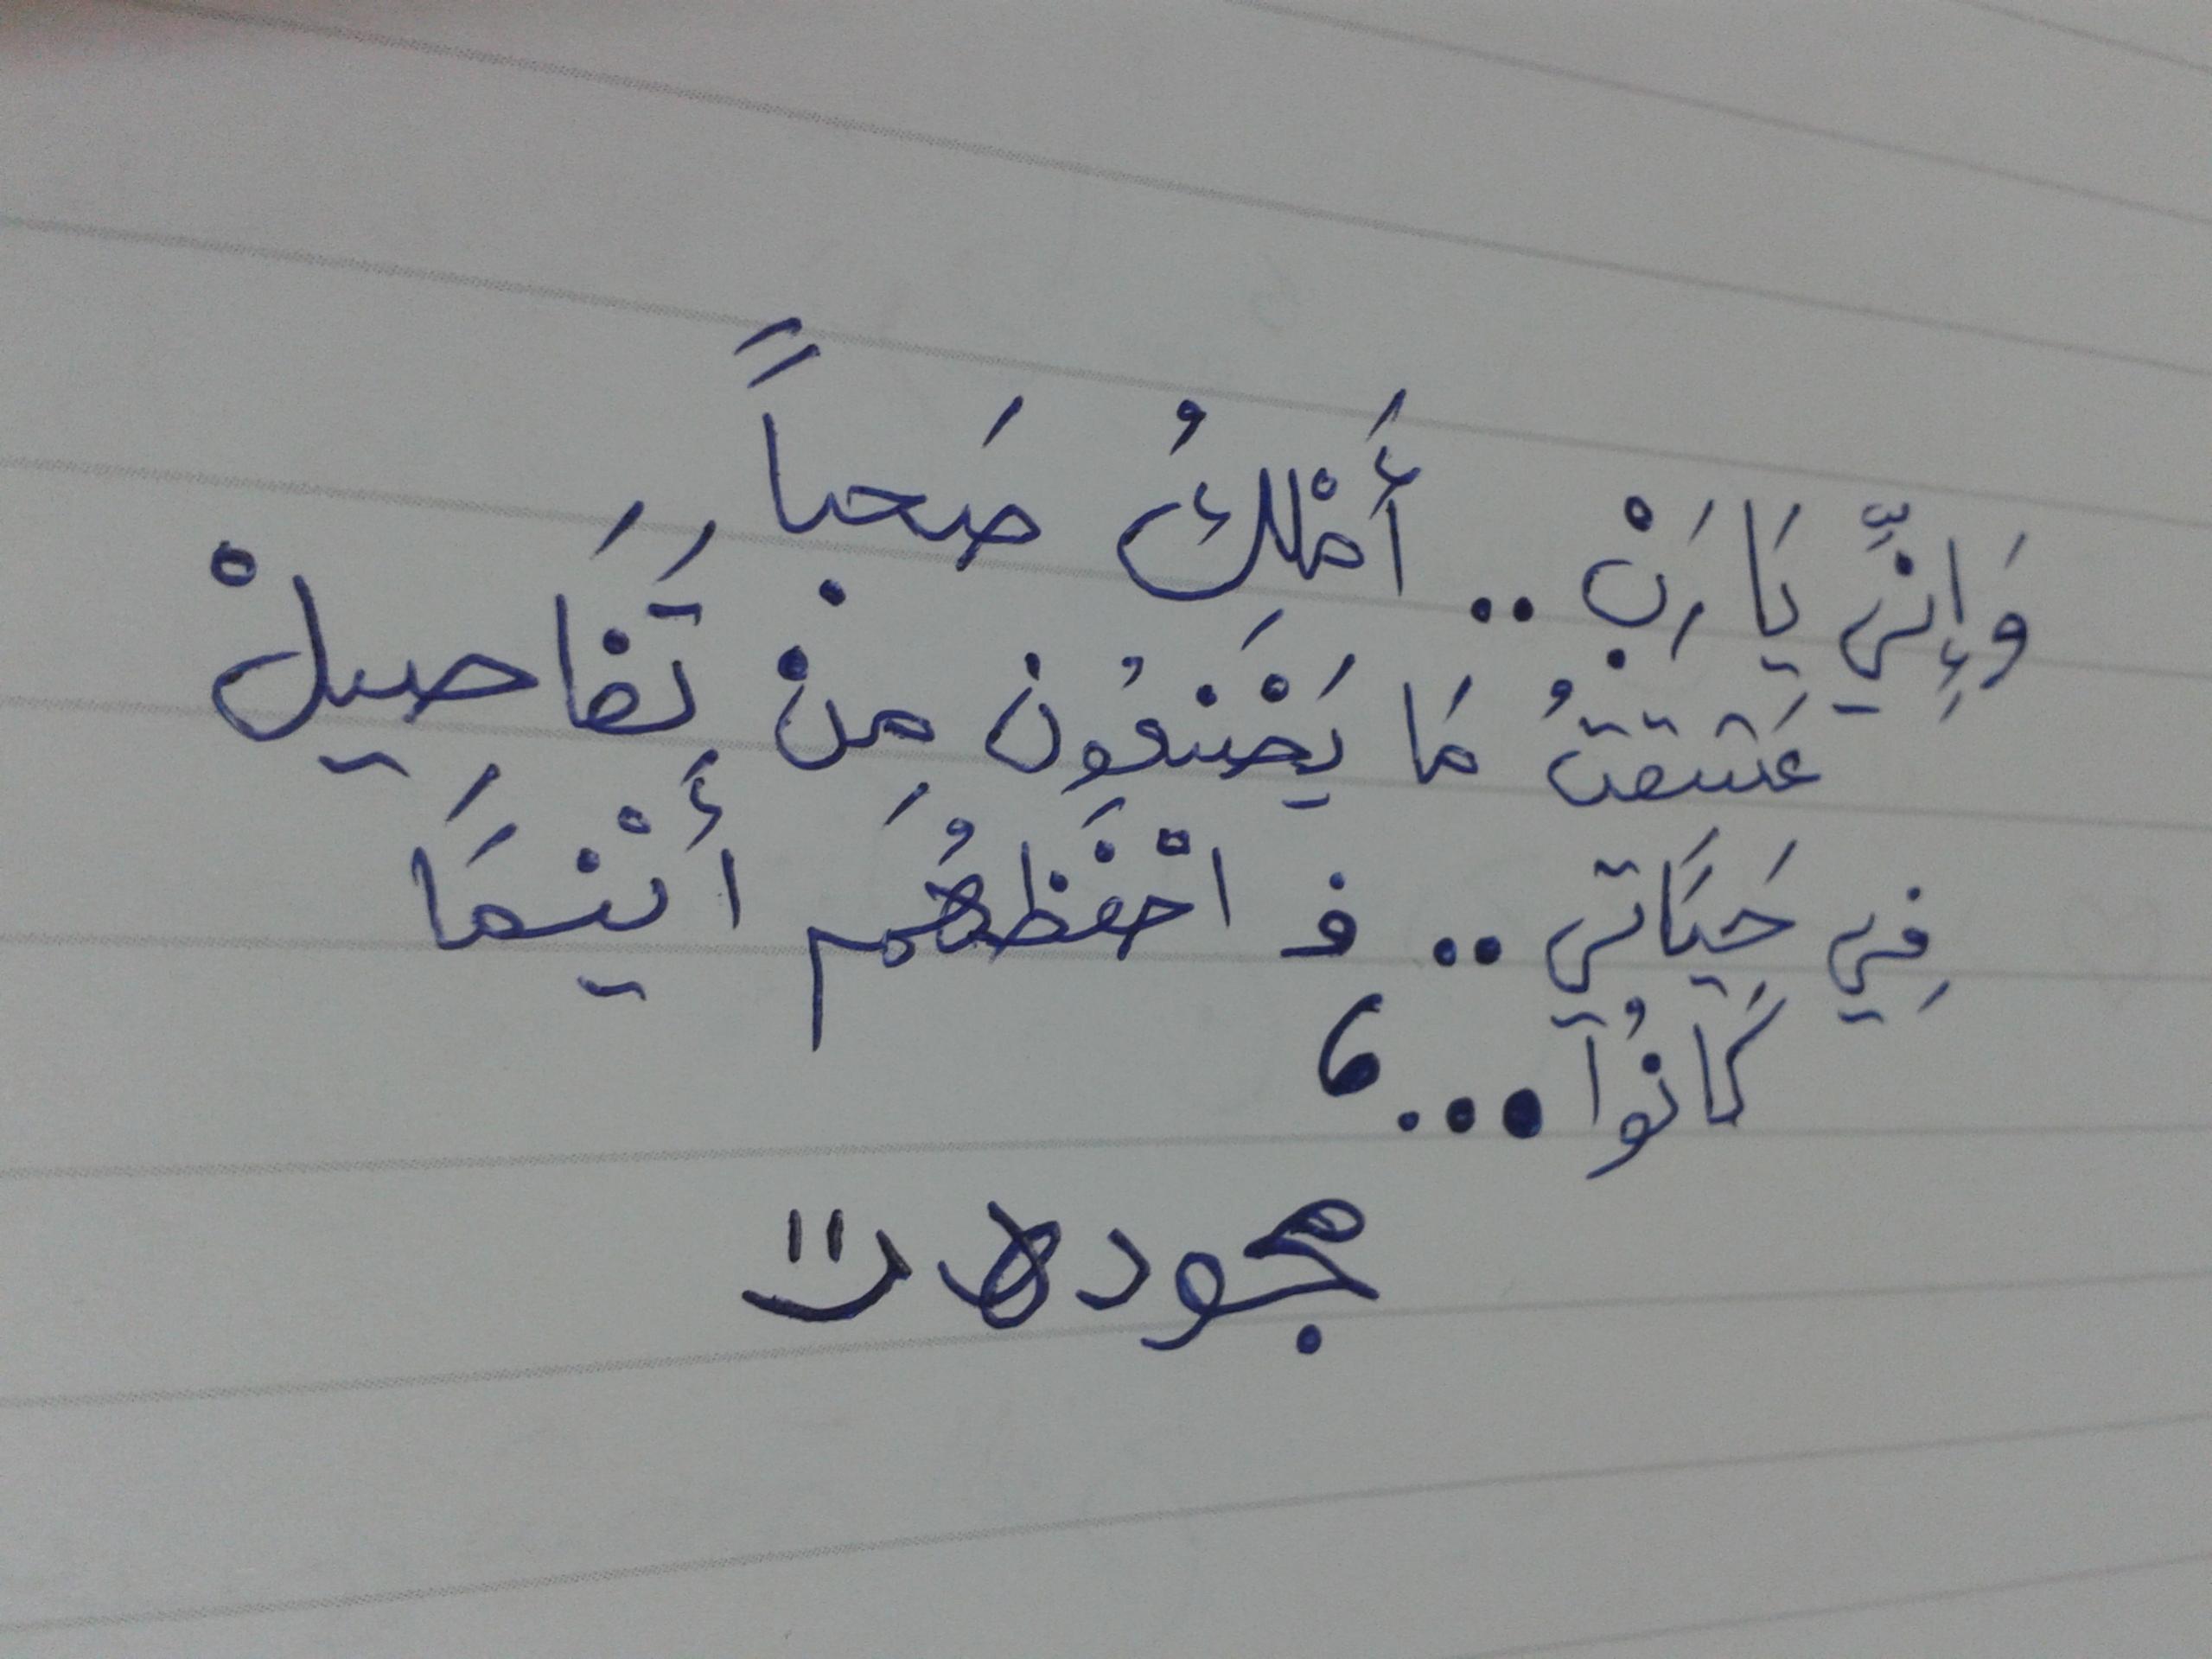 وَإِنِّي يَا رَبْ .. أَمْلِكُ صَحباً
عَشقتُ مَا يَصْنعُون مِنْ تَفَاصِيلْ
فِي حَيَاتي .. فـ احْفَظهُم أَيْنمَا
كَانُوا ...،
مجوده